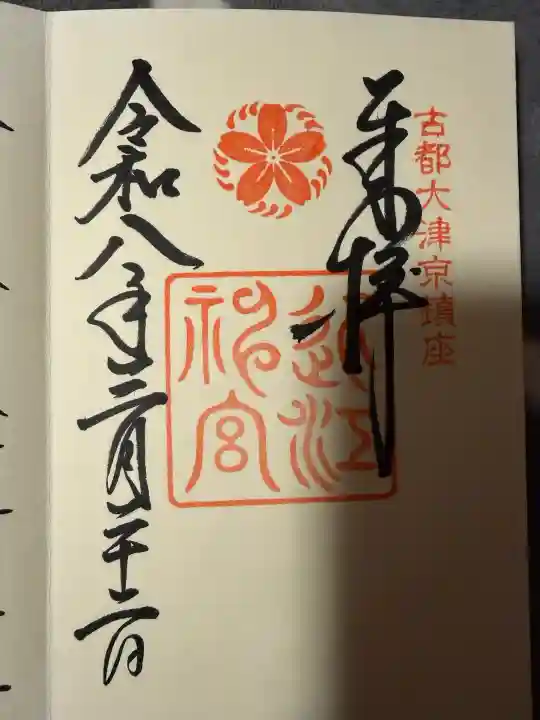 古都大津京鎮座
奉拝
近江
神宮
令和八年二月二十二日